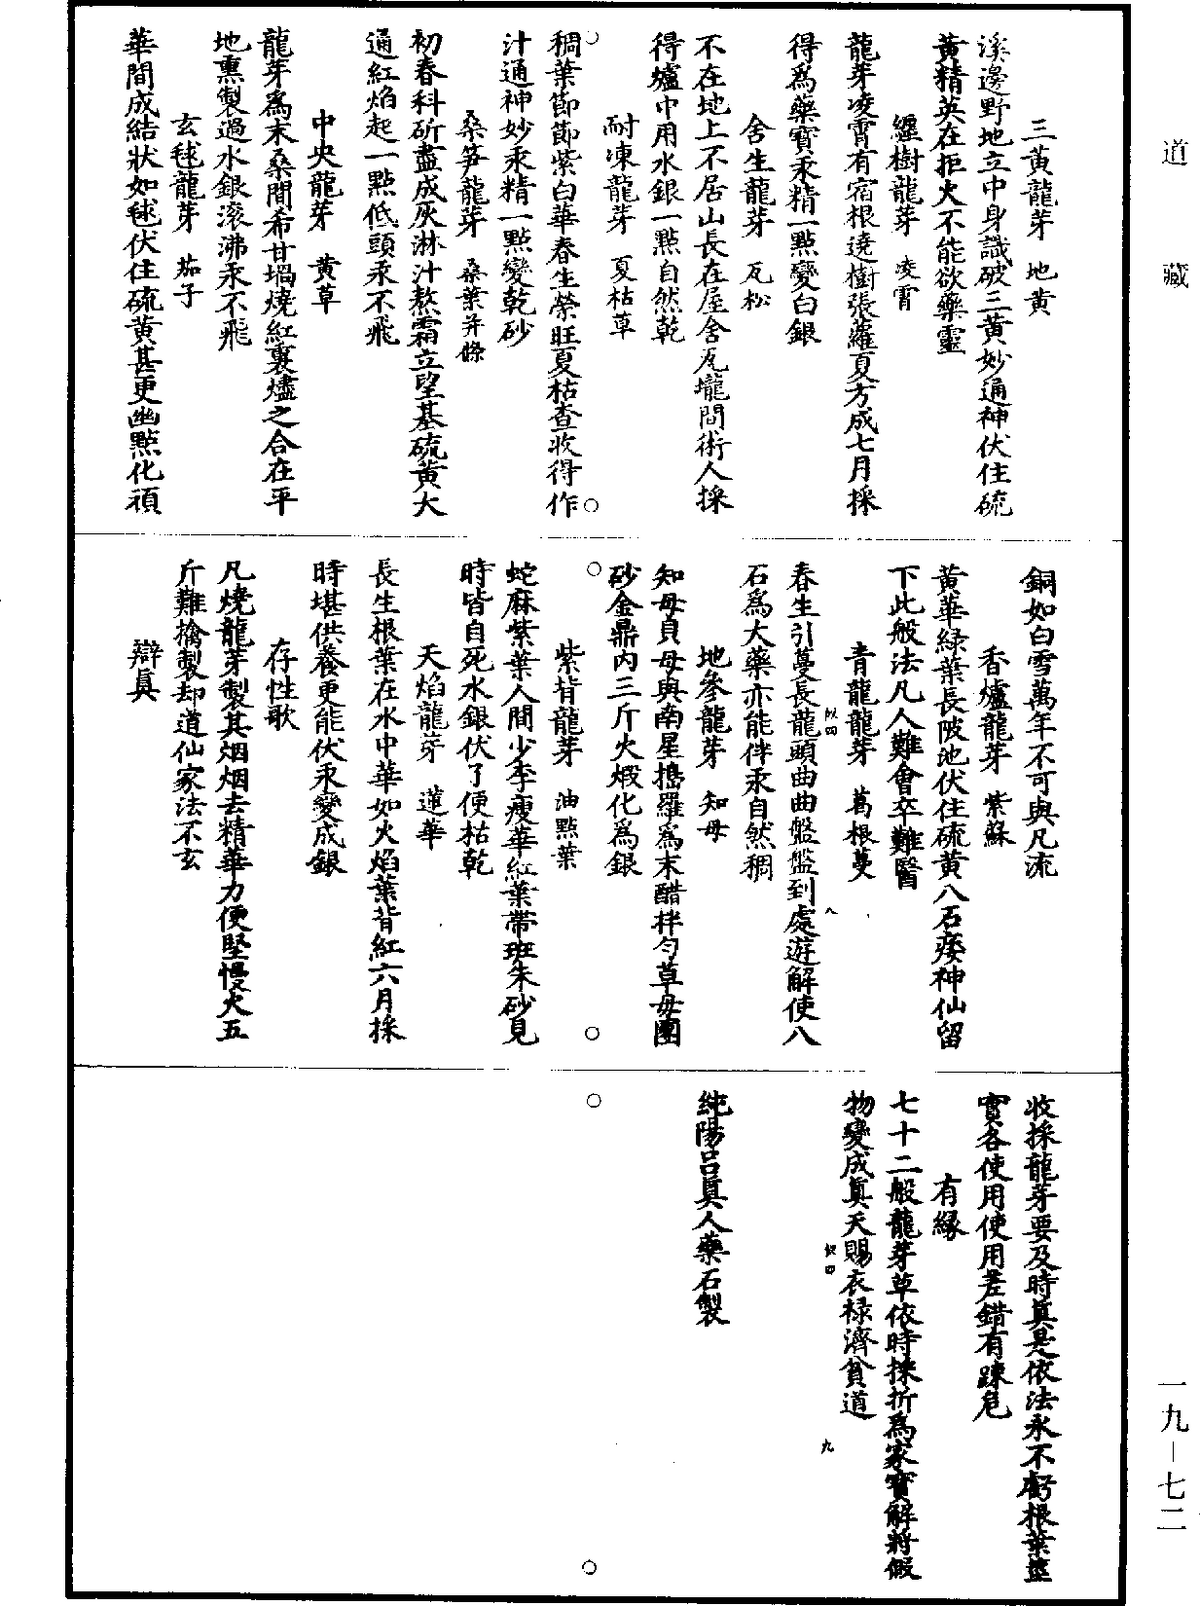 道藏
三黃龍芽　地黃
溪邊野地立中身識破三黃妙通神伏住硫
黃精英在拒火不能欲藥靈
纏樹龍芽　凌霄
龍芽凌霄有宿根遶樹張蘿夏方成七月採
得爲藥寶汞精一點變白銀
舍生龍芽　瓦松
不在地上不居山長在屋舍瓦壠間術人採
得爐中用水銀一點自然乾
耐凍龍芽　夏枯草
稠葉節節紫白華春生榮旺夏枯查收得作
汁通神妙汞精一點變乾砂
桑笋龍芽　桑葉并條
初春科斫盡成灰淋汁熬霜立望基硫黃大
通紅焰起一點低頭汞不飛
中央龍芽　黃草
龍芽爲末桑間希甘堝燒紅裏燼之合在平
地熏製過水銀滚沸汞不飛
玄毬龍芽　茄子
華間成結狀如毬伏住硫黃甚更幽點化頑
銅如白雪萬年不可與凡流
香爐龍芽　紫蘇
黃華綠葉長陂池伏住硫黃八石痿神仙留
下此般法凡人難會卒難醫
青龍龍芽　葛根蔓
春生引蔓長龍頭曲曲盤盤到處遊解使八
石爲大藥亦能伴汞自然稠
似四　八
地參龍芽　知母
知母貝母與南星搗羅爲末醋拌勻草母團
砂金鼎內三斤火煅化爲銀
紫背龍芽　油點葉
蛇麻紫葉人間少李瘦華紅葉帶斑朱砂見
時皆自死水銀伏了便枯乾
天焰龍芽　蓮華
長生根葉在水中華如火焰葉背紅六月採
時堪供養更能伏汞變成銀
存性歌
凡燒龍芽製其烟烟去精華力便堅慢火五
斤難擒製却道仙家法不玄
辯眞
收採龍芽要及時眞是依法永不虧根葉莖
實各使用使用差錯有踈危
有緣
七十二般龍芽草依時採折爲家寶解將假
物變成眞天賜衣祿濟貧道
似四　九
純陽呂眞人藥石製
一九—七二